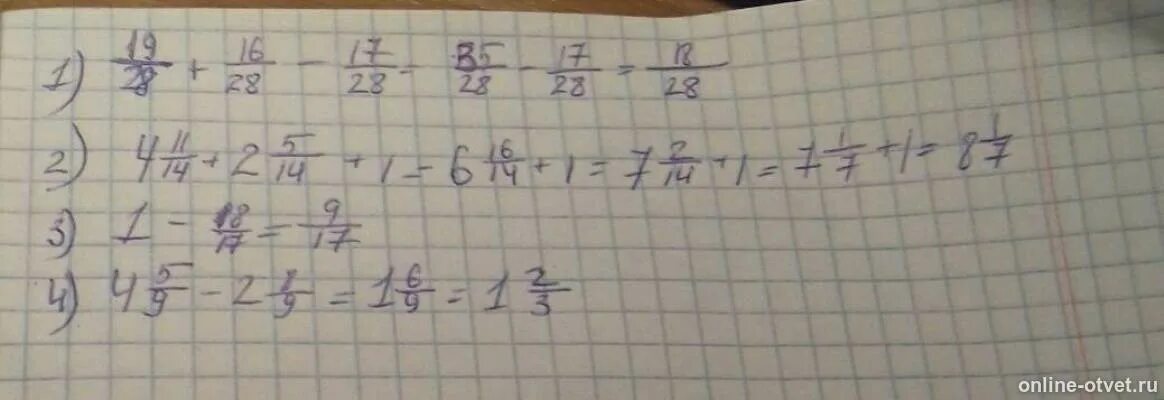 1) 19/28 + 16/28 - 17/28 - 35/28 - 17/28 = 18/28
2) 4 11/14 + 2 5/14 + 1 - 6 16/14 + 1 = 7 2/14 + 1 = 7 1/7 + 1 = 8 1/7
3) 1 - 18/17 = 9/17
4) 4 5/9 - 2 8/9 = 1 6/9 = 1 2/3
online-otvet.ru